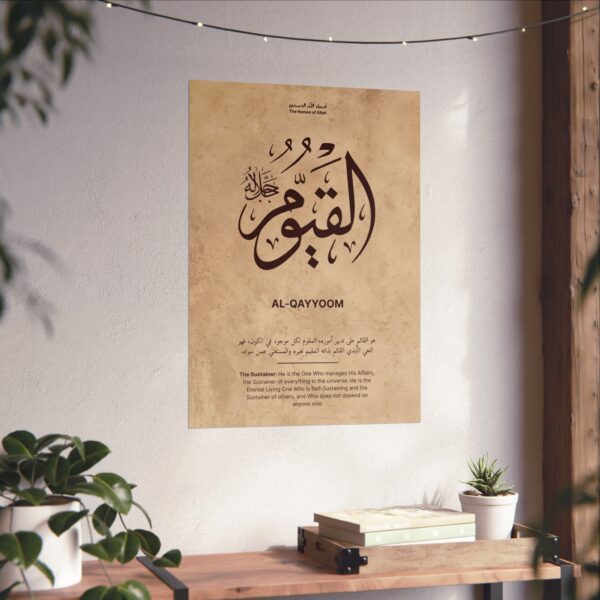 أسماء الله الحسنى
The Names of Allah
القيوم
جل جلاله
AL-QAYYOOM
هو القائم على تدبير أموره، المقوم لكل موجود في الكون، فهو
الحي الأبدي القائم بذاته المقيم لغيره والمستغني عمن سواه.
The Sustainer: He is the One Who manages His Affairs,
the Sustainer of everything in the universe. He is the
Eternal Living One Who is Self-Sustaining and the
Sustainer of others, and Who does not depend on
anyone else.
HOME